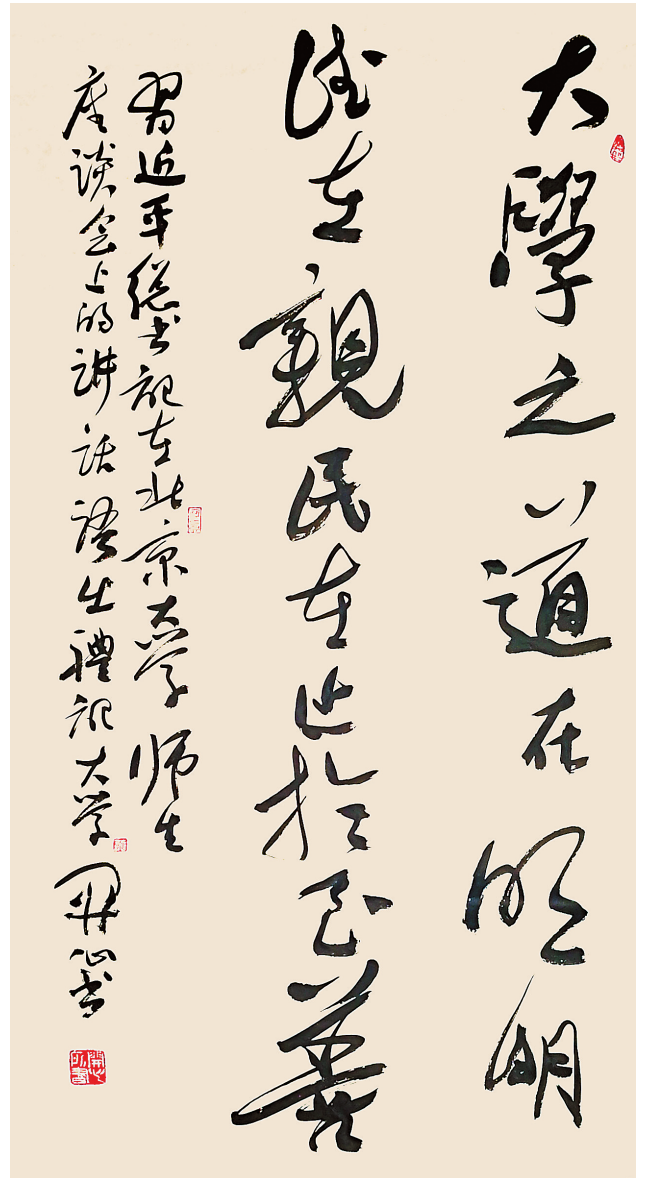 大學之道在明明
德在親民在止於至善
習近平總书記在北京大学师生
座谈会上的讲话語出禮記大学 開心书